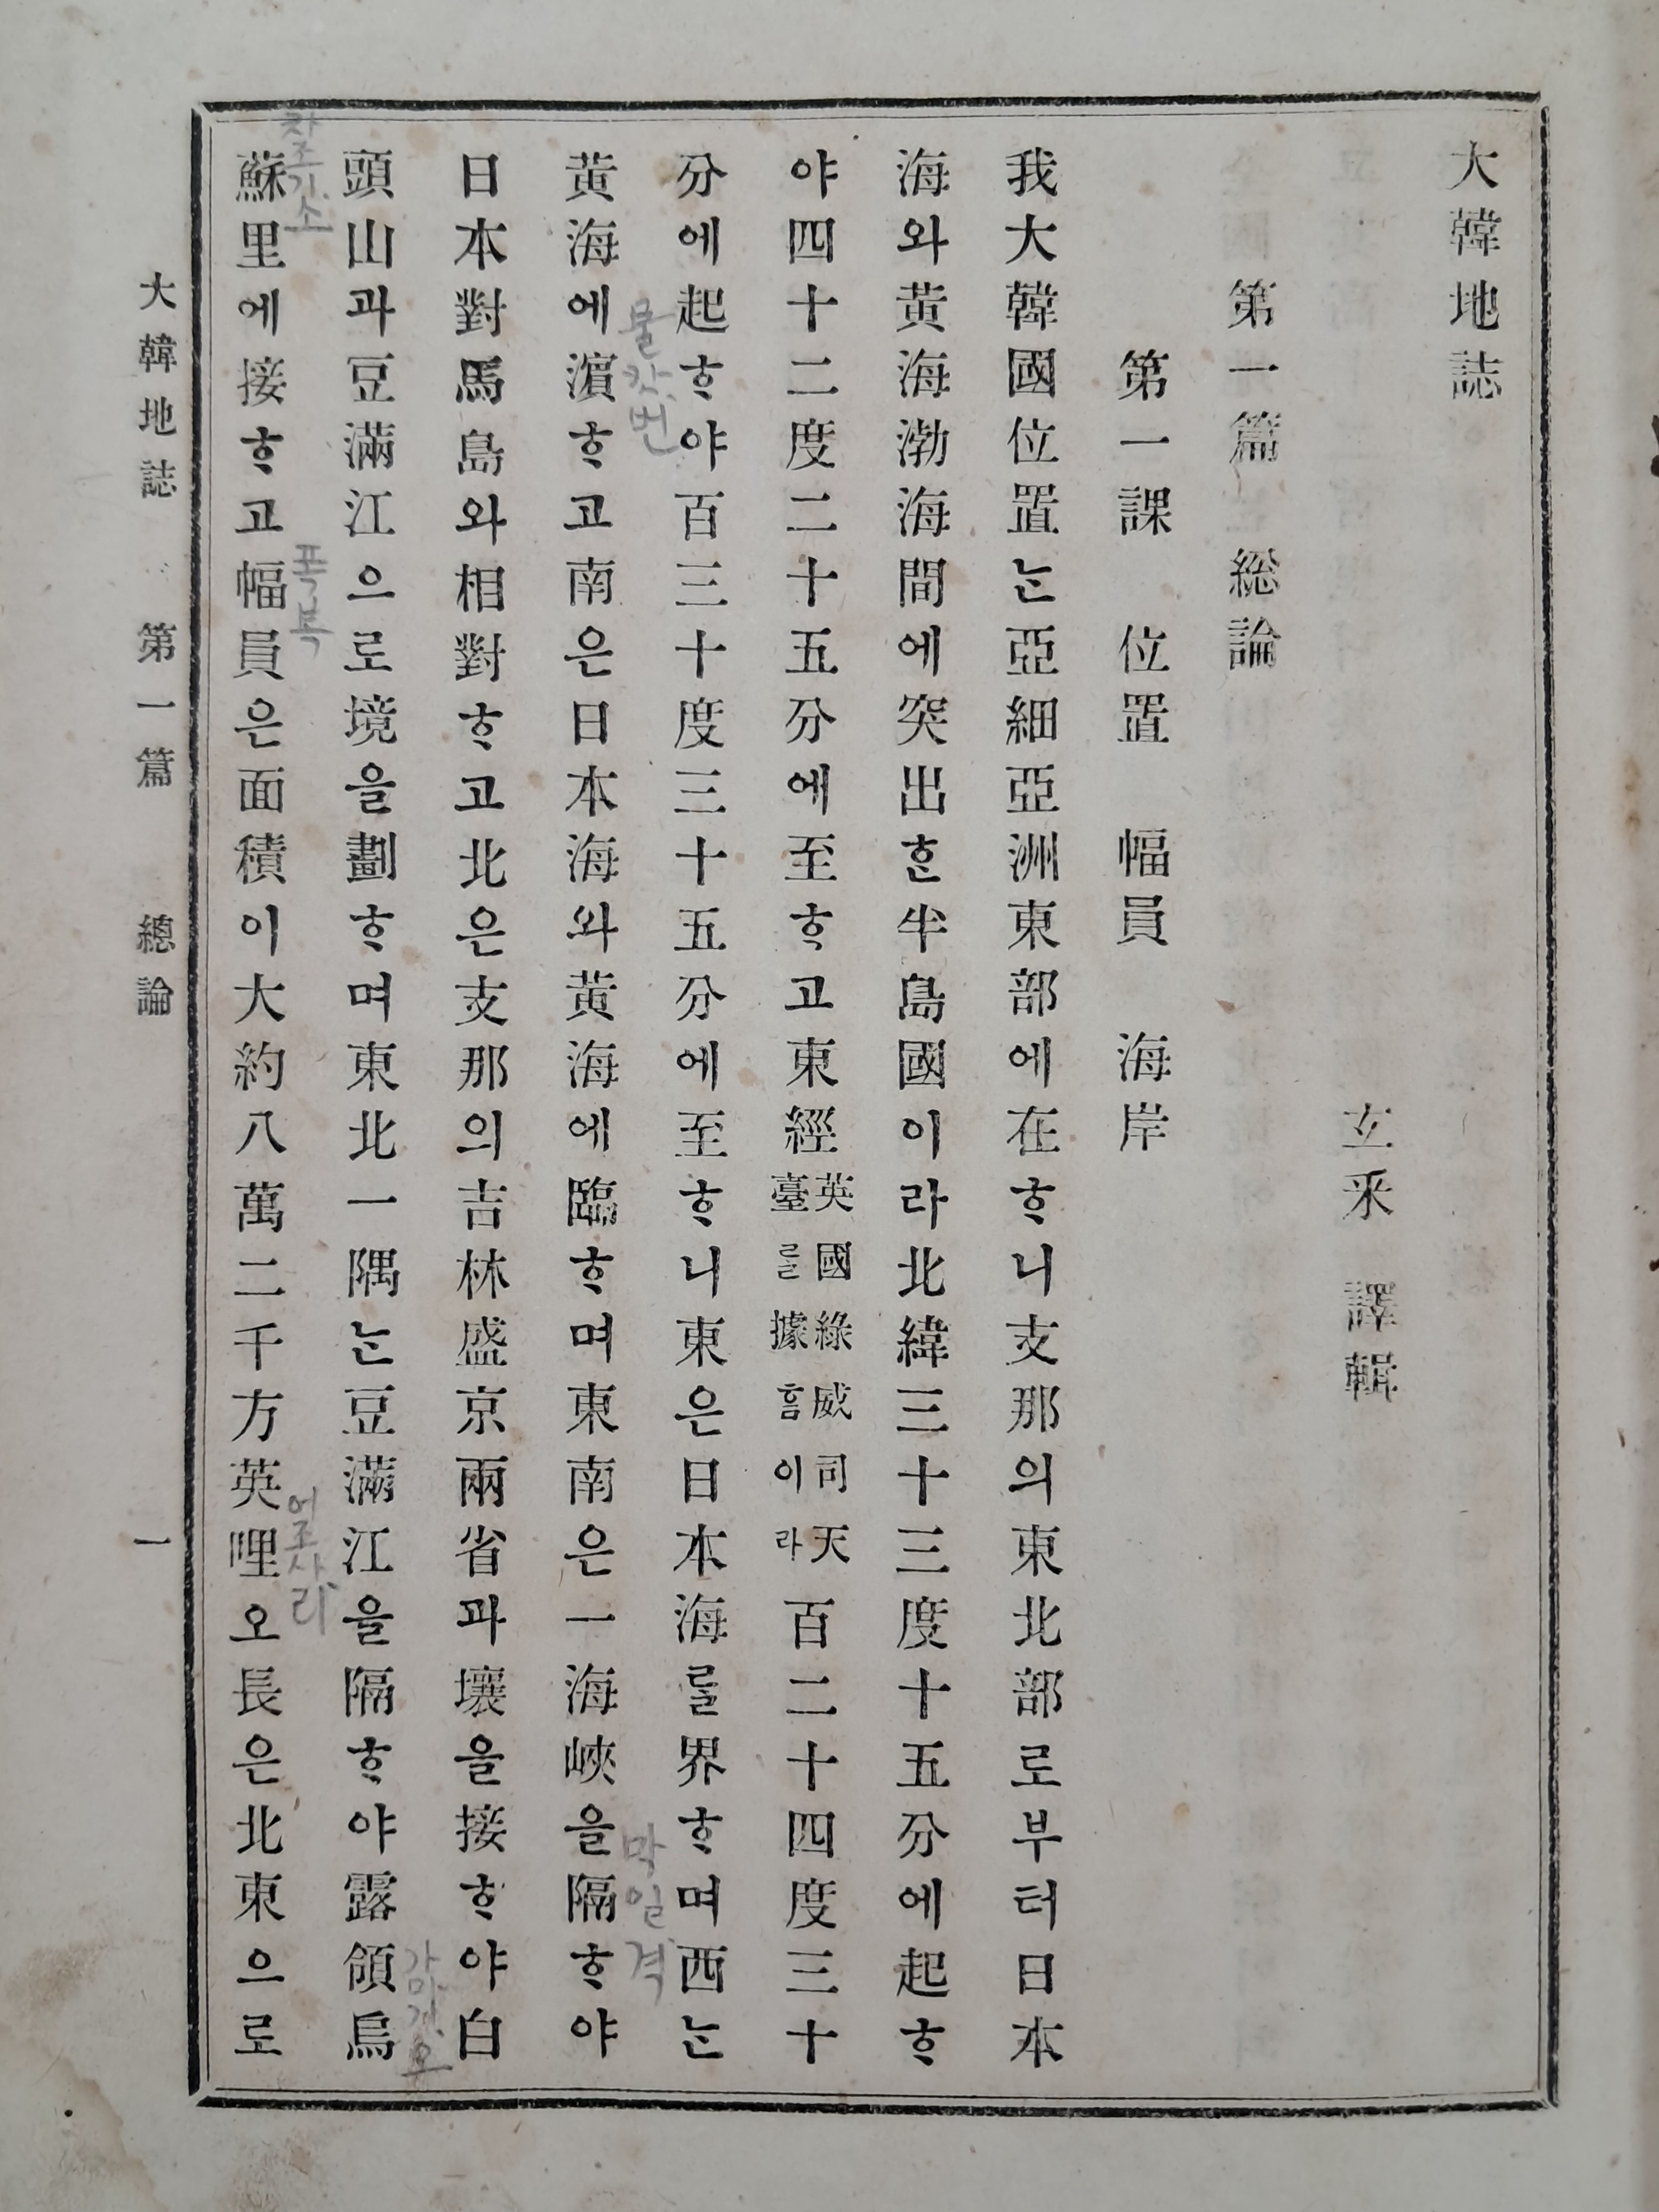 大韓地誌
玄采 譯輯
第一篇 総論
第一課 位置 幅員 海岸
我大韓國位置는亞細亞洲東部에在ᄒᆞ니支那의東北部로부터日本
海와黃海渤海間에突出ᄒᆞᆫ半島國이라北緯三十三度十五分에起ᄒᆞ
야四十二度二十五分에至ᄒᆞ고東經英國綠威司天臺를據홈이라百二十四度三十
分에起ᄒᆞ야百三十度三十五分에至ᄒᆞ니東은日本海를界ᄒᆞ며西는
黃海에濵ᄒᆞ고南은日本海와黃海에臨ᄒᆞ며東南은一海峽을隔ᄒᆞ야
日本對馬島와相對ᄒᆞ고北은支那의吉林盛京兩省과壤을接ᄒᆞ야白
頭山과豆滿江으로境을劃ᄒᆞ며東北一隅는豆滿江을隔ᄒᆞ야露領烏
蘇里에接ᄒᆞ고幅員은面積이大約八萬二千方英哩오長은北東으로
大韓地誌 第一篇 總論 一
물가 번
막일 격
가마귀 오
차조기 소
폭 폭
어조사 리